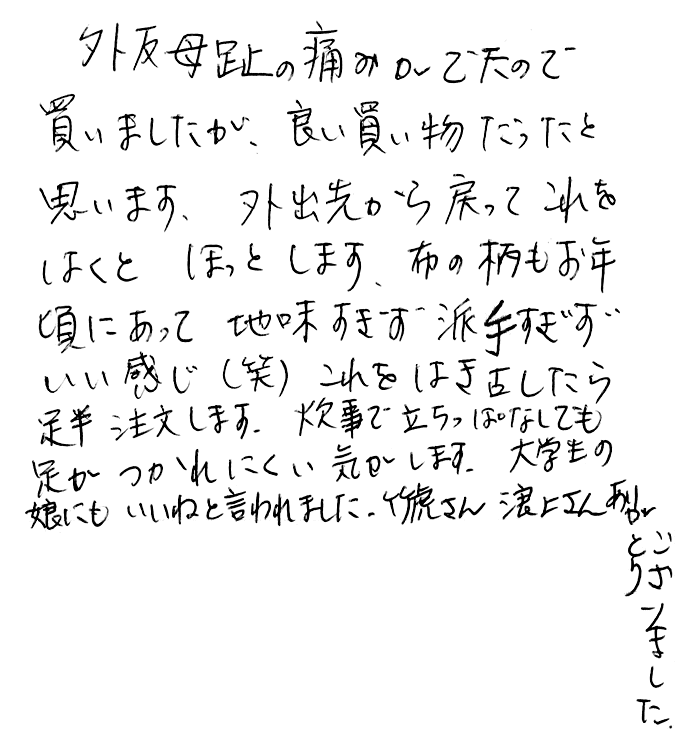 外反母趾の痛みがでたので
買いましたが、良い買い物だったと
思います、外出先から戻ってこれを
はくと ほっとします、布の柄もお年
頃にあって 地味すぎず 派手すぎず
いい感じ（笑）これをはき古したら
足半 注文します. 炊事で立ちっぱなしても
足が つかれにくい気がします. 大学生の
娘にも いいねと言われました. 竹虎さん 濱上さん あり
がとうございました.